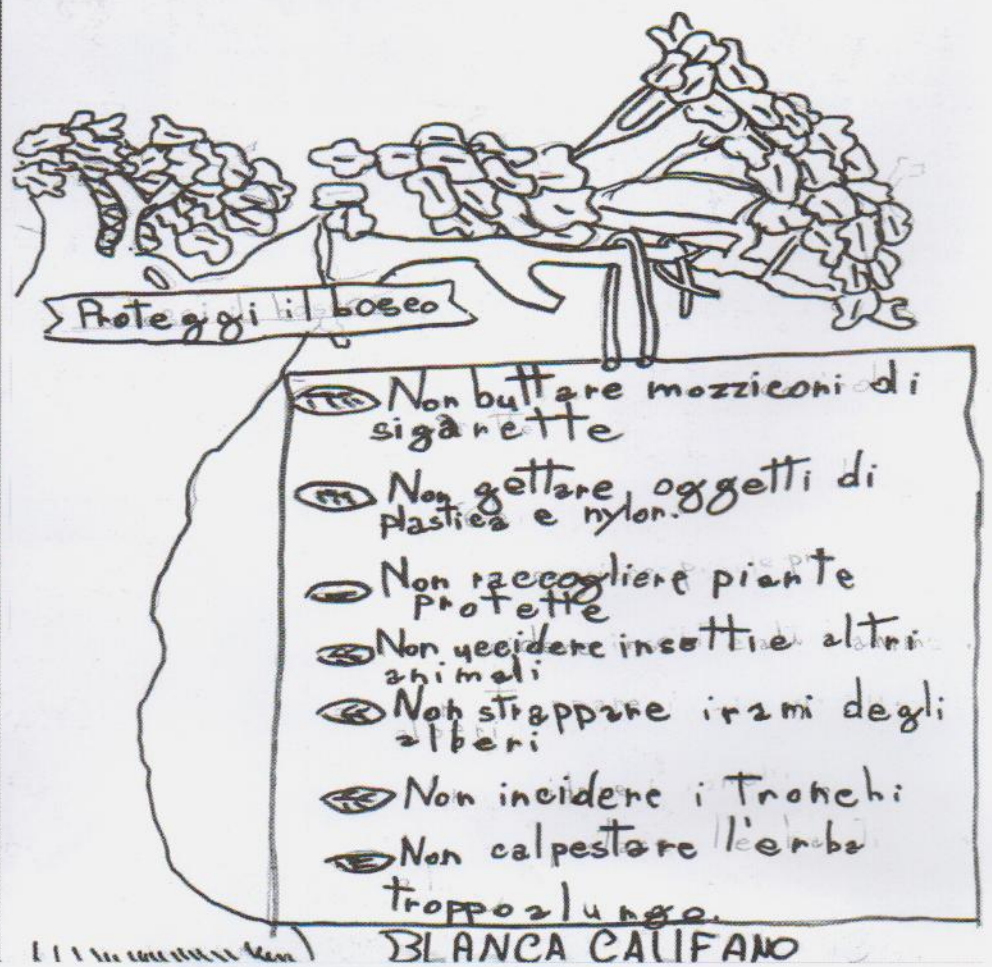 Proteggi il bosco
Non buttare mozziconi di
sigarette
Non gettare oggetti di
plastica e nylon.
Non raccogliere piante
protette
Non uccidere insetti e altri
animali
Non strappare i rami degli
alberi
Non incidere i Tronchi
Non calpestare l'erba
troppo a lungo.
BLANCA CALIFANO